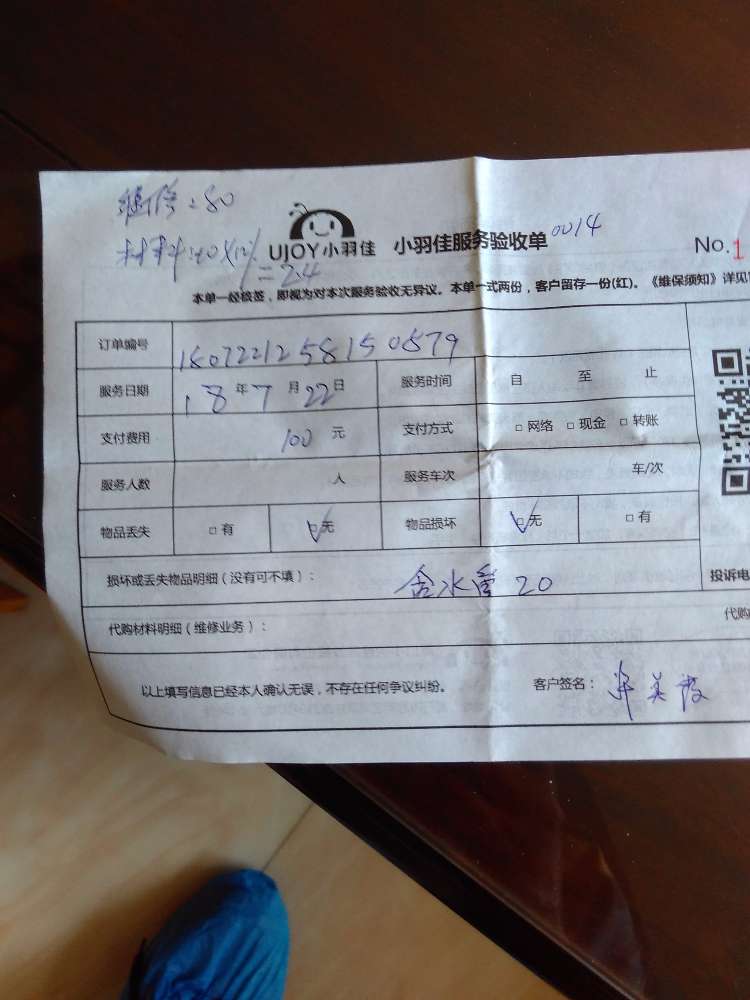 维修:80
材料:20×12%
=2.4
UJOY小羽佳 小羽佳服务验收单 0014
No.1
本单一经核签，即视为对本次服务验收无异议。本单一式两份，客户留存一份(红)。《维保须知》详见
订单编号 1807221258150579
服务日期 18年7月22日 服务时间 自 至 止
支付费用 100元 支付方式 □网络 □现金 □转账
服务人数 人 服务车次 车/次
物品丢失 □有 ☑无 物品损坏 ☑无 □有
损坏或丢失物品明细（没有可不填）： 水 20
投诉电
代购材料明细（维修业务）：
代购
以上填写信息已经本人确认无误，不存在任何争议纠纷。 客户签名： 美